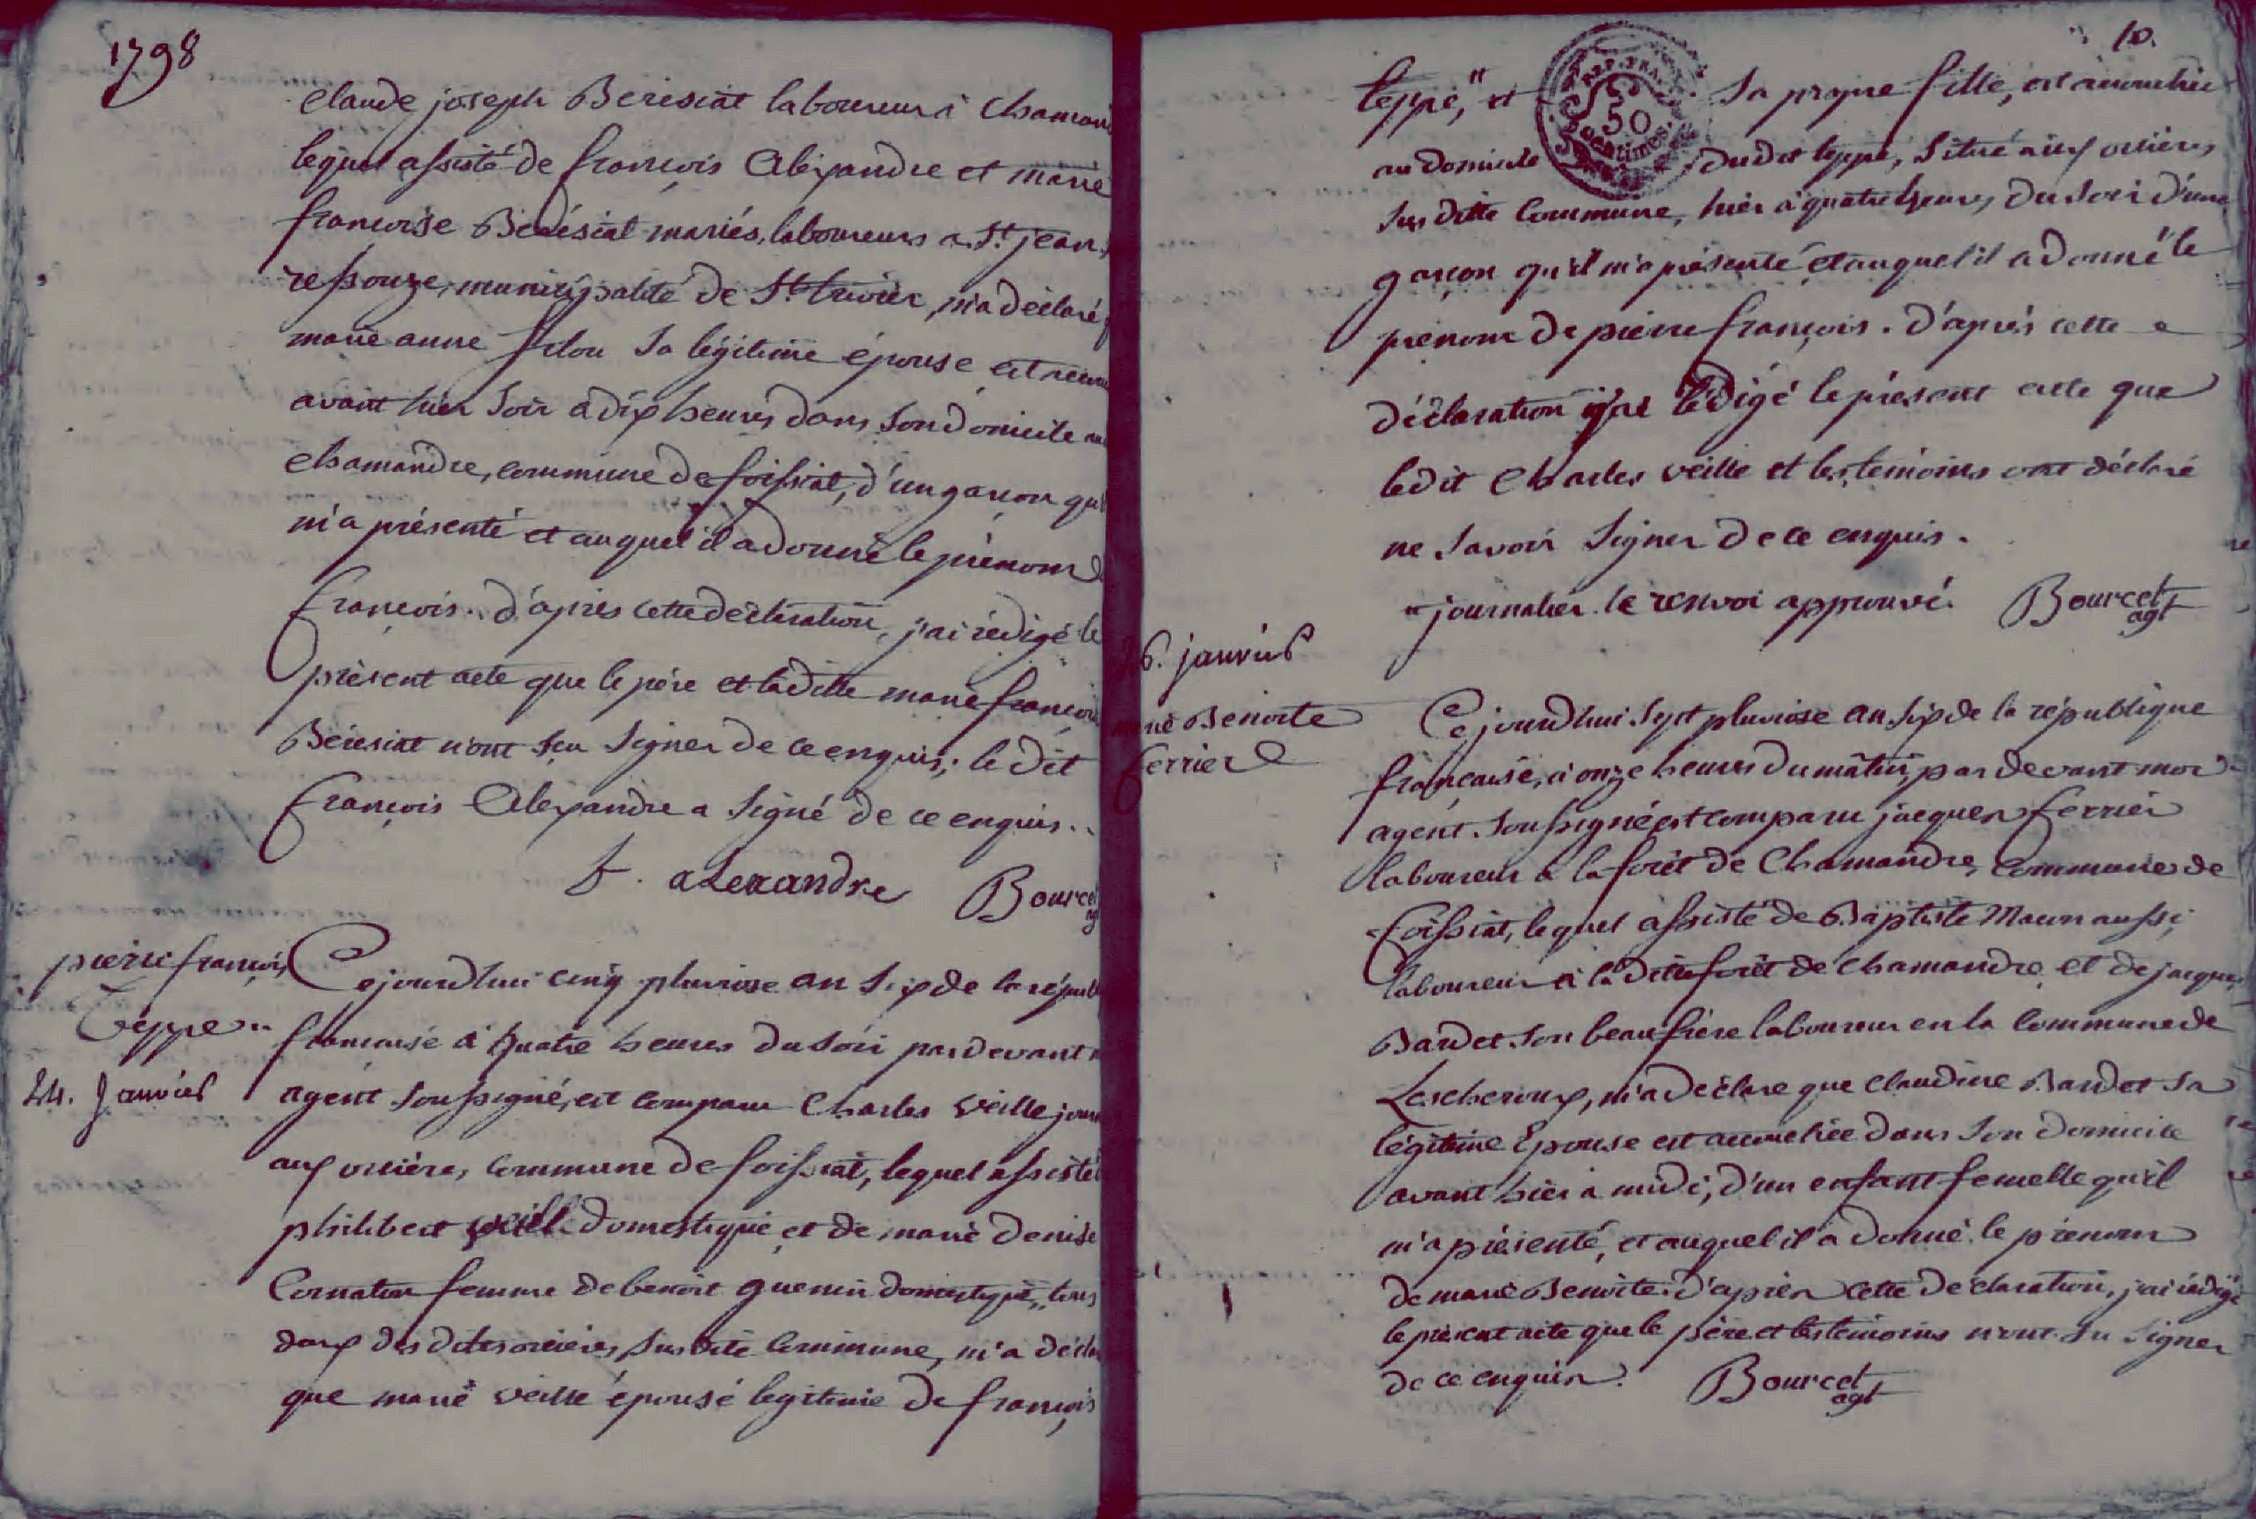 1798
claude joseph Beresiat laboureur à Chaman
lequel assisté de françois Alexandre et marie
françoise Beresiat mariés, laboureurs a St. jean
ressouze, municipalité de St. trivier, m'a déclaré
marie anne sa légitime épouse est
avant hier soir a dix heures dans son domicile au
chamandre, commune de foissiat, d'un garçon qu
m'a présenté et auquel il a donné le prénom d
françois. d'après cette déclaration, j'ai rédigé le
présent acte que le père et laditte marie françoi
Beresiat n'ont sçu signer de ce enquis; le dit
françois Alexandre a signé de ce enquis..
f. alexandre Bourcet
ag
pierre françois
Teppe..
24. Janvier
Cejourdhui cinq pluviose an six de la répub
française à quatre heures du soir pardevant m
agent soussigné, est comparu Charles veille jour
aux orcières, commune de foissiat, lequel assisté
philibert veille domestique et de marie denise
Cornaton femme de benoit guenin domestique, tous
deux des dites orcières, sus dite commune, m'a décla
que marie veille épouse legitime de françois
10.
teppe," et sa propre fille, est accouchée
au domicile dudit teppe, situé aux orcières
REP. FRA.
50
centimes.
sus ditte commune, hier à quatre heures du soir d'un
garçon qu'il m'a présenté et auquel il a donné le
prénom de pierre françois. d'après cette
déclaration j'ai rédigé le présent acte que
ledit Charles veille et les témoins ont déclaré
ne savoir signer de ce enquis.
" journalier. le renvoi approuvé. Bourcet
agt
6. janvier
rie Benoite
ferrier
Cejourdhui sept pluviose an six de la république
française, à onze heures du mâtin, par devant moi
agent soussigné est comparu jacques ferrier
laboureur à la forêt de Chamandre, Commune de
foissiat, lequel assisté de Baptiste Maun aussi
laboureur à la ditte forêt de chamandre et de jacques
Bardet son beaufrère laboureur en la Commune de
Lescheroux, m'a déclaré que claudine Bardet sa
légitime épouse est accouchée dans son domicile
avant hier à midi, d'un enfant femelle qu'il
m'a présenté, et auquel il a donné le prénom
de marie Benoite. d'après cette déclaration, j'ai rédigé
le présent acte que le père et les témoins n'ont su signer
de ce enquis. Bourcet
agt